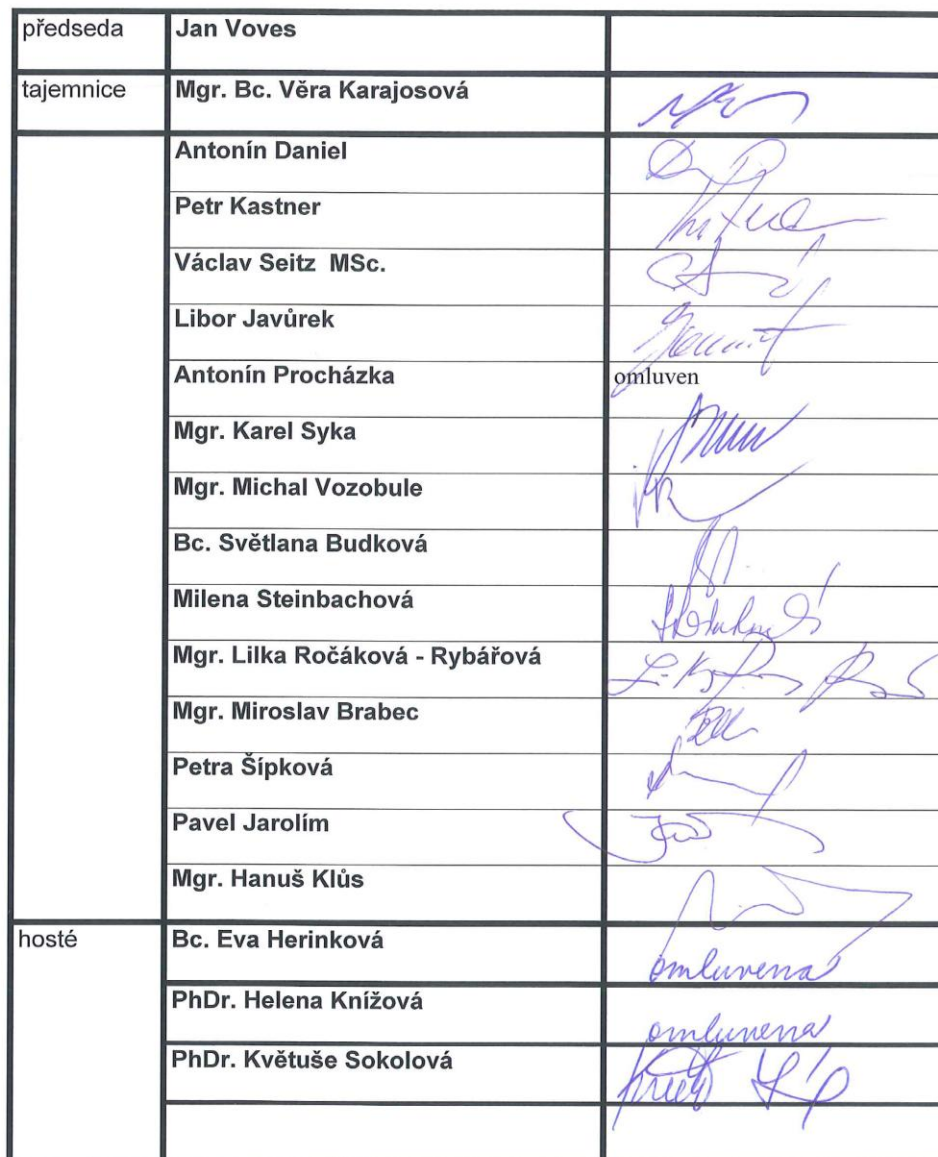 předseda Jan Voves
tajemnice Mgr. Bc. Věra Karajosová
Antonín Daniel
Petr Kastner
Václav Seitz MSc.
Libor Javůrek
Antonín Procházka omluven
Mgr. Karel Syka
Mgr. Michal Vozobule
Bc. Světlana Budková
Milena Steinbachová
Mgr. Lilka Ročáková - Rybářová
Mgr. Miroslav Brabec
Petra Šípková
Pavel Jarolím
Mgr. Hanuš Klůs
hosté Bc. Eva Herinková omluvena
PhDr. Helena Knížová omluvena
PhDr. Květuše Sokolová